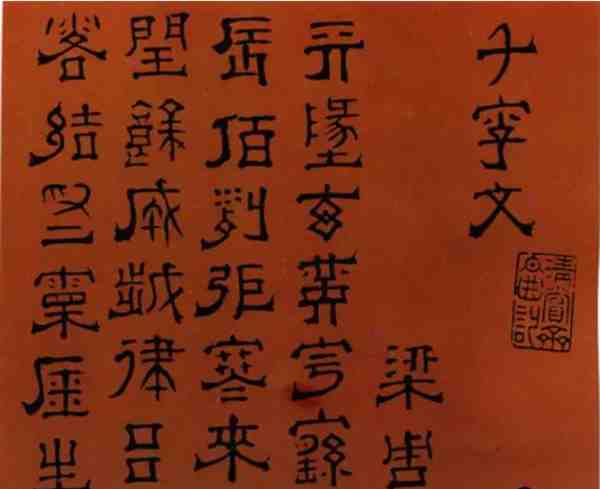 千字文
梁周
天墬玄黃宇宙
辰宿列張寒來
閏餘成歲律呂
露結為霜金生